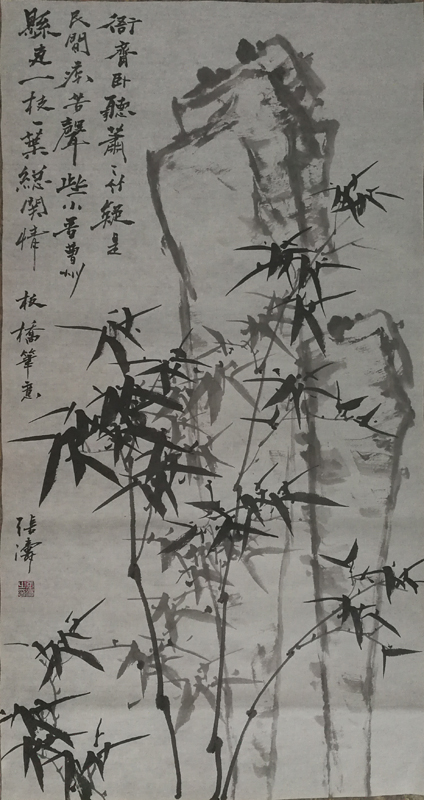 衙齋卧聽蕭〻竹疑是
民間疾苦聲些小吾曹州
縣吏一枝一葉總関情 板橋筆意
張濤